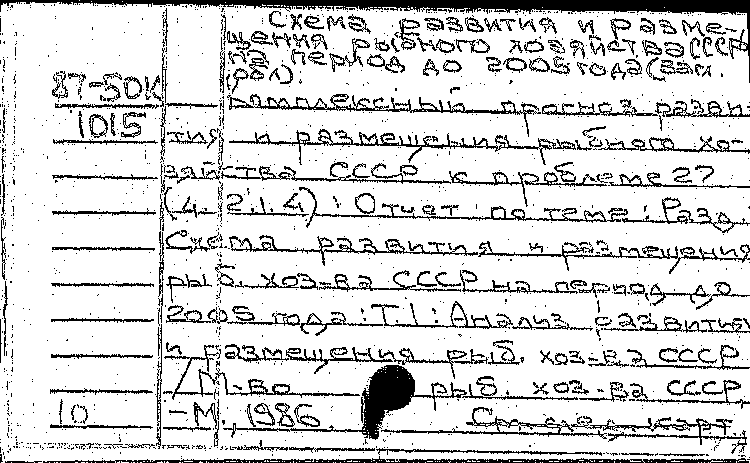 Схема развития и разме-
щения рыбного хозяйства СССР
на период до 2005 года (зам.
рол).
87-50К
Комплексный прогноз разви
1015
тия и размещения рыбного хо-
зяйства СССР к проблеме 27
(4.2.1.4) : Отчет по теме : Разд.
Схема развития и размещения
рыб. хоз-ва СССР на период до
2005 года : Т.1 : Анализ развития
и размещения рыб. хоз-ва СССР
/ М-во рыб. хоз-ва СССР,
10
- М., 1986. См. след. карт.